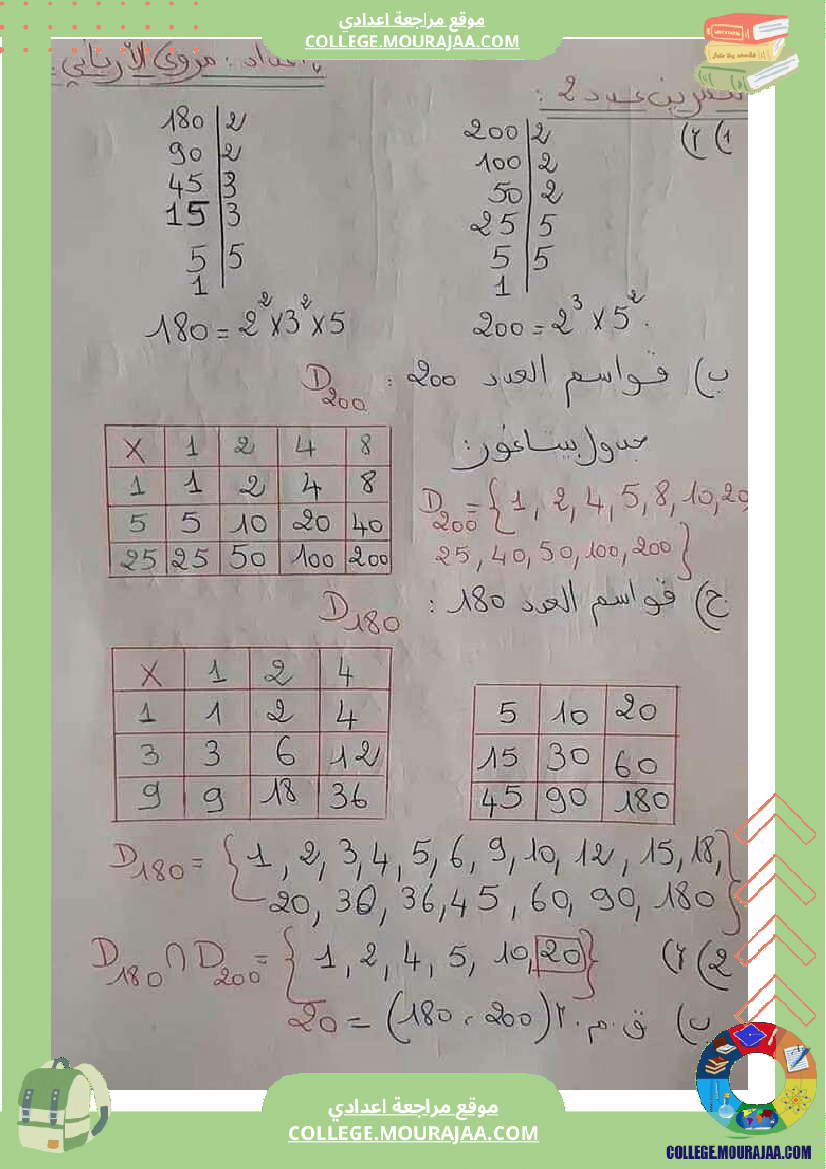 موقع مراجعة اعدادي
COLLEGE.MOURAJAA.COM
عدد 2 :
1) أ)
200 | 2
100 | 2
50 | 2
25 | 5
5 | 5
1
200 = 2³ × 5² .
180 | 2
90 | 2
45 | 3
15 | 3
5 | 5
1
180 = 2² × 3² × 5
ب) قواسم العدد 200 : D₂₀₀
جدول بيتاغور:
× 1 2 4 8
1 1 2 4 8
5 5 10 20 40
25 25 50 100 200
D₂₀₀ = {1, 2, 4, 5, 8, 10, 20
25, 40, 50, 100, 200}
ج) قواسم العدد 180 :
D₁₈₀
× 1 2 4
1 1 2 4
3 3 6 12
9 9 18 36
5 10 20
15 30 60
45 90 180
D₁₈₀ = {1, 2, 3, 4, 5, 6, 9, 10, 12, 15, 18,
20, 30, 36, 45, 60, 90, 180}
2) أ) D₁₈₀ ∩ D₂₀₀ = {1, 2, 4, 5, 10, 20}
ب) ق.م.أ (200 ، 180) = 20
موقع مراجعة اعدادي
COLLEGE.MOURAJAA.COM
COLLEGE.MOURAJAA.COM